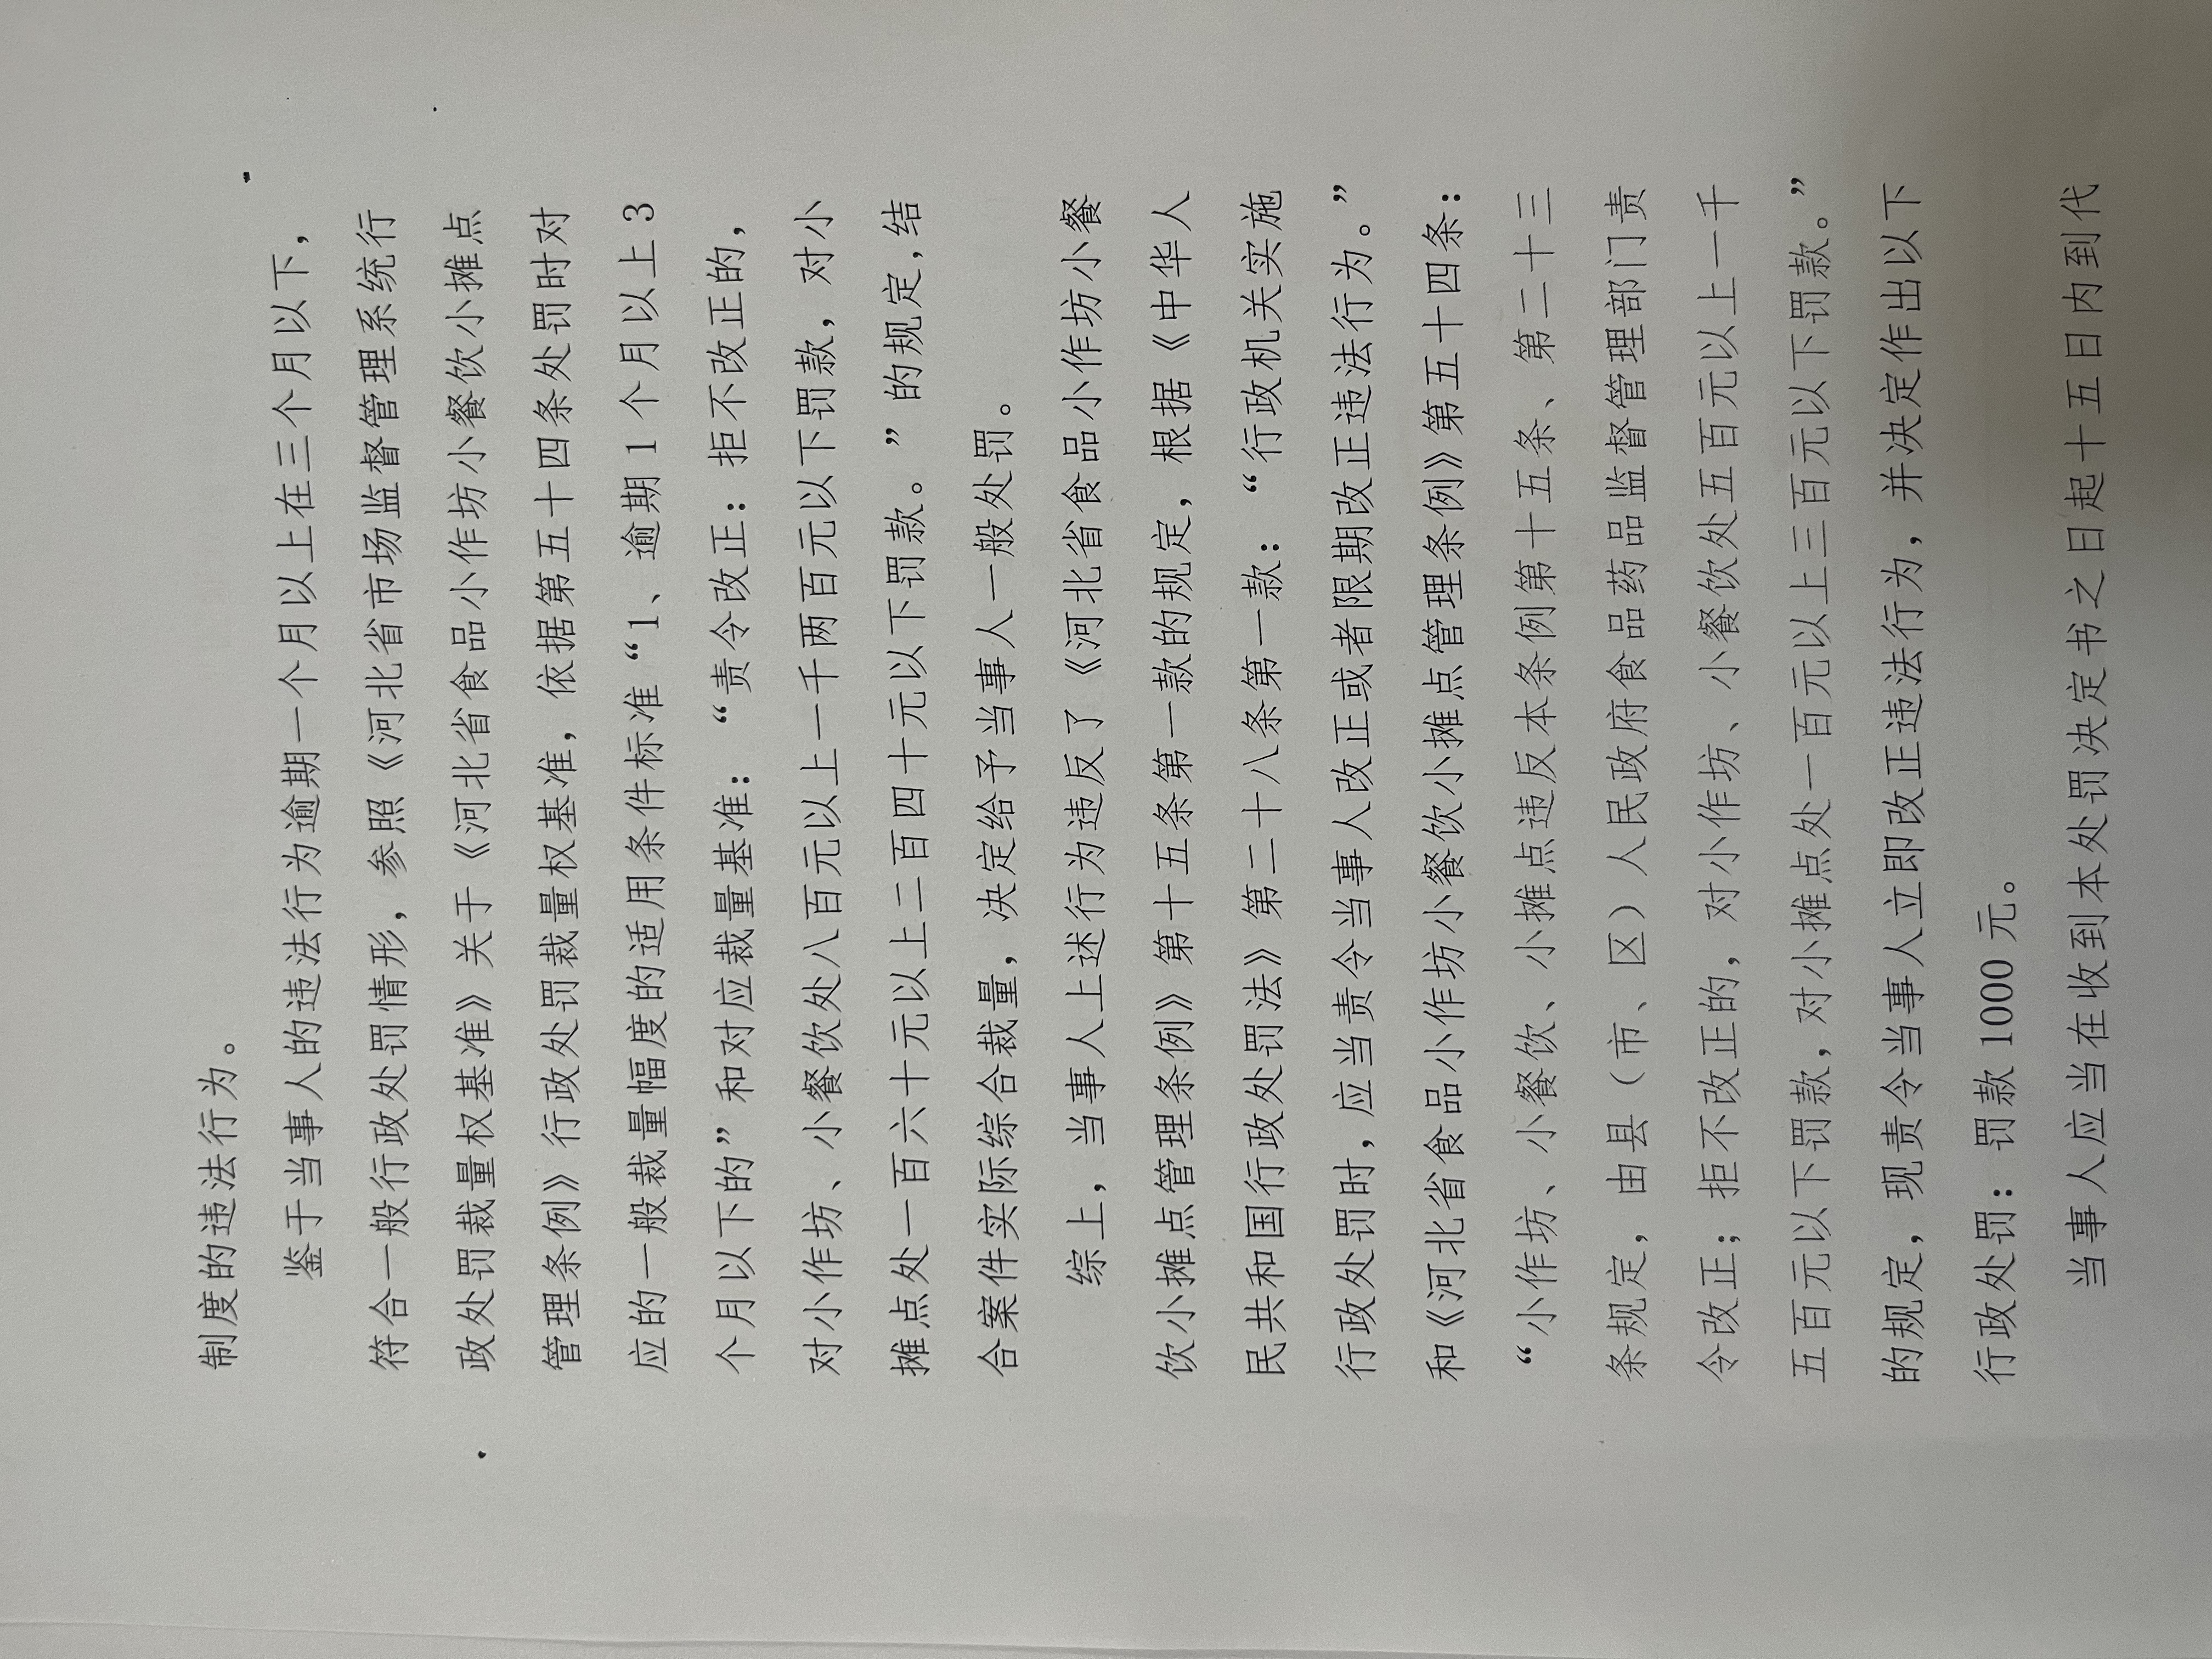 制度的违法行为。
鉴于当事人的违法行为逾期一个月以上在三个月以下，
符合一般行政处罚情形，参照《河北省市场监督管理系统行
政处罚裁量权基准》关于《河北省食品小作坊小餐饮小摊点
管理条例》行政处罚裁量权基准，依据第五十四条处罚时对
应的一般裁量幅度的适用条件标准“1、逾期 1 个月以上 3
个月以下的”和对应裁量基准：“责令改正：拒不改正的，
对小作坊、小餐饮处八百元以上一千两百元以下罚款，对小
摊点处一百六十元以上二百四十元以下罚款。”的规定,结
合案件实际综合裁量，决定给予当事人一般处罚。
综上，当事人上述行为违反了《河北省食品小作坊小餐
饮小摊点管理条例》第十五条第一款的规定，根据《中华人
民共和国行政处罚法》第二十八条第一款：“行政机关实施
行政处罚时,应当责令当事人改正或者限期改正违法行为。”
和《河北省食品小作坊小餐饮小摊点管理条例》第五十四条：
“小作坊、小餐饮、小摊点违反本条例第十五条、第二十三
条规定，由县（市、区）人民政府食品药品监督管理部门责
令改正；拒不改正的，对小作坊、小餐饮处五百元以上一千
五百元以下罚款,对小摊点处一百元以上三百元以下罚款。”
的规定，现责令当事人立即改正违法行为，并决定作出以下
行政处罚：罚款 1000 元。
当事人应当在收到本处罚决定书之日起十五日内到代